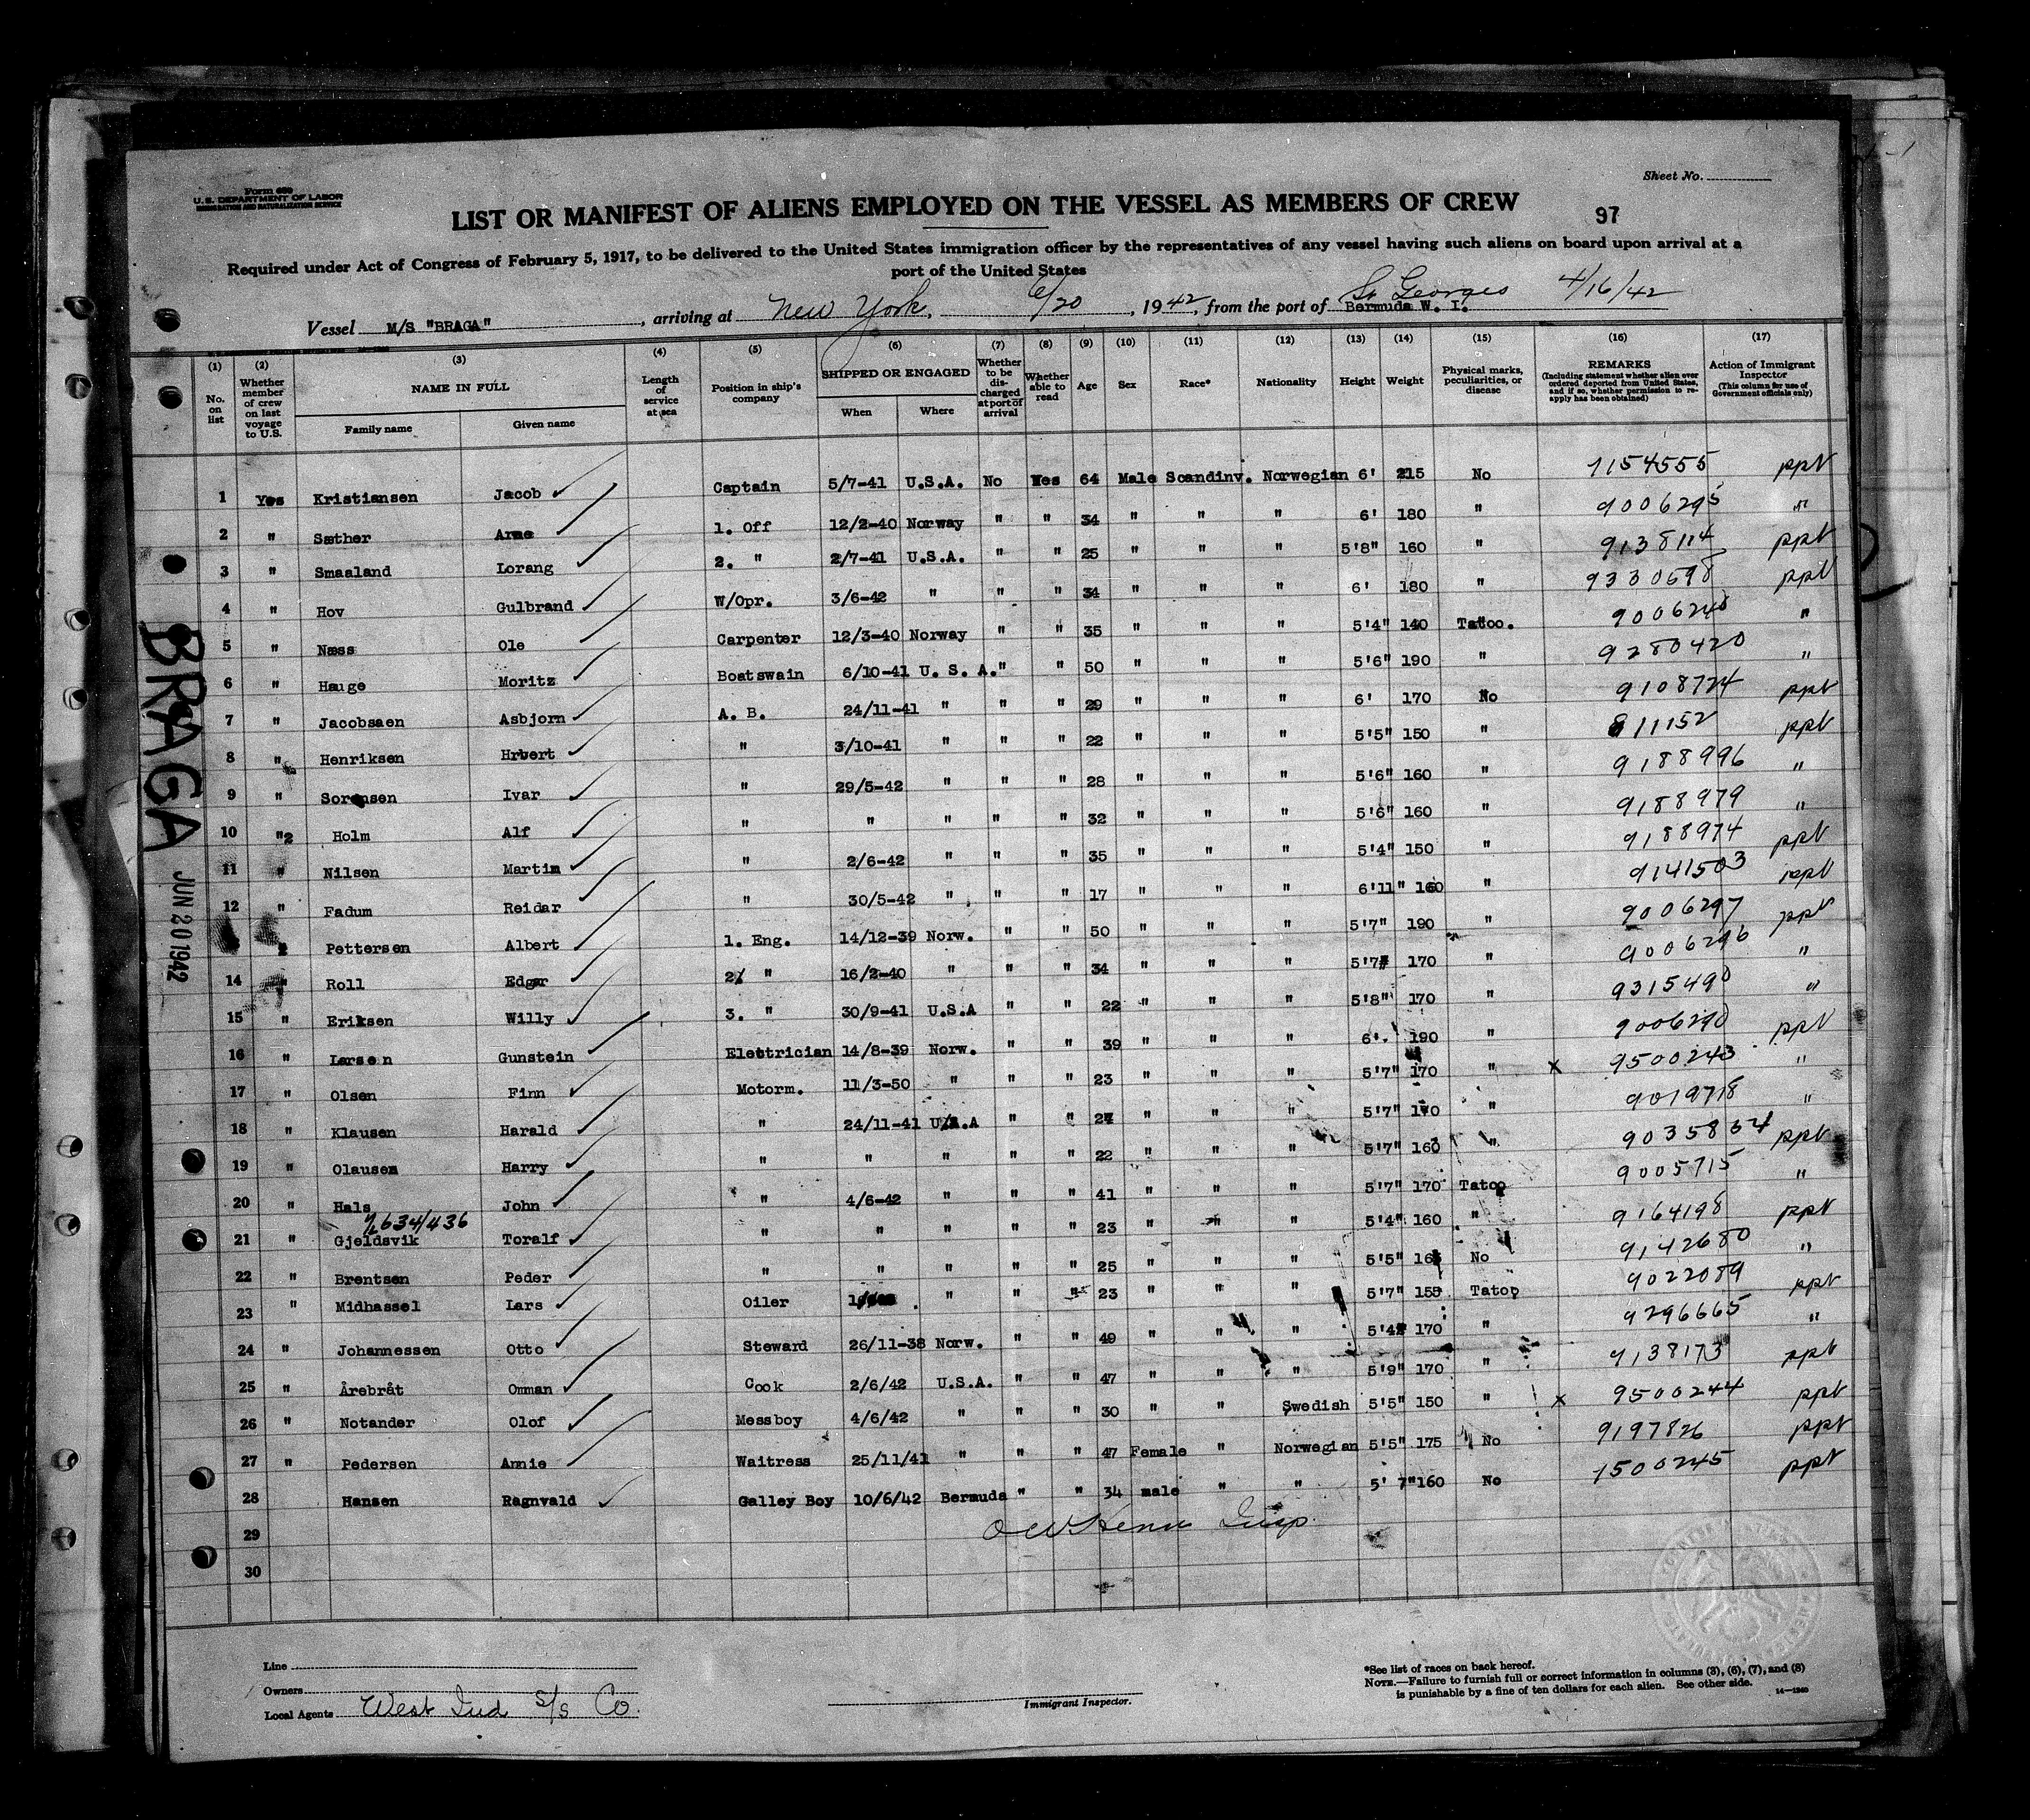 Form 689
U. S. DEPARTMENT OF LABOR
IMMIGRATION AND NATURALIZATION SERVICE
Sheet No.
LIST OR MANIFEST OF ALIENS EMPLOYED ON THE VESSEL AS MEMBERS OF CREW
97
Required under Act of Congress of February 5, 1917, to be delivered to the United States immigration officer by the representatives of any vessel having such aliens on board upon arrival at a
port of the United States
Vessel M/S "BRAGA", arriving at New York, 6/20, 1942, from the port of St Georges Bermuda W. I. 4/16/42
(1) (2) (3) (4) (5) (6) (7) (8) (9) (10) (11) (12) (13) (14) (15) (16) (17)
No. on list Whether member of crew on last voyage to U.S. NAME IN FULL Family name Given name Length of service at sea Position in ship's company SHIPPED OR ENGAGED When Where Whether to be discharged at port of arrival Whether able to read Age Sex Race* Nationality Height Weight Physical marks, peculiarities, or disease REMARKS (Including statement whether alien ever ordered deported from United States, and if so, whether permission to reapply has been obtained) Action of Immigrant Inspector (This column for use of Government officials only)
1 Yes Kristiansen Jacob Captain 5/7-41 U.S.A. No Yes 64 Male Scandinv. Norwegian 6' 215 No 1154555 ppt
2 " Sæther Arne 1. Off 12/2-40 Norway " " 34 " " " 6' 180 " 9006295 "
3 " Smaaland Lorang 2. " 2/7-41 U.S.A. " " 25 " " " 5'8" 160 " 9138114 ppt
4 " Hov Gulbrand W/Opr. 3/6-42 " " " 34 " " " 6' 180 " 9330698 ppt
5 " Næss Ole Carpenter 12/3-40 Norway " " 35 " " " 5'4" 140 Tatoo. 9006248 "
6 " Hauge Moritz Boatswain 6/10-41 U. S. A. " " 50 " " " 5'6" 190 " 9280420 "
7 " Jacobsaen Asbjorn A. B. 24/11-41 " " " 29 " " " 6' 170 No 9108724 ppt
8 " Henriksen Hrbert " 3/10-41 " " " 22 " " " 5'5" 150 " 811152 ppt
9 " Sorensen Ivar " 29/5-42 " " " 28 " " " 5'6" 160 " 9188996 "
10 "2 Holm Alf " " " " " 32 " " " 5'6" 160 " 9188979 "
11 " Nilsen Martin " 2/6-42 " " " 35 " " " 5'4" 150 " 9188974 ppt
12 " Fadum Reidar " 30/5-42 " " " 17 " " " 6'11" 160 " 9141503 ppt
Pettersen Albert 1. Eng. 14/12-39 Norw. " " 50 " " " 5'7" 190 " 9006297 ppt
14 " Roll Edgar 2 " 16/2-40 " " " 34 " " " 5'7" 170 " 9006296 "
15 " Eriksen Willy 3. " 30/9-41 U.S.A " " 22 " " " 5'8" 170 " 9315490 "
16 " Larsen Gunstein Electrician 14/8-39 Norw. " " 39 " " " 6'. 190 " 9006290 ppt
17 " Olsen Finn Motorm. 11/3-50 " " " 23 " " " 5'7" 170 " x 9500243 "
18 " Klausen Harald " 24/11-41 U.S.A " " 24 " " " 5'7" 170 " 9019718 "
19 " Olausen Harry " " " " " 22 " " " 5'7" 160 " 9035834 ppt
20 " Hals John " 4/6-42 " " " 41 " " " 5'7" 170 Tatoo 9005715 "
634/436
21 " Gjeldsvik Toralf " " " " " 23 " " " 5'4" 160 " 9164198 ppt
22 " Brentsen Peder " " " " " 25 " " " 5'5" 165 No 9142680 "
23 " Midhassel Lars Oiler " " " 23 " " " 5'7" 155 Tatoo 9022089 ppt
24 " Johannessen Otto Steward 26/11-38 Norw. " " 49 " " " 5'4" 170 " 9296665 "
25 " Årebråt Omman Cook 2/6/42 U.S.A. " " 47 " " " 5'9" 170 " 9138173 ppt
26 " Notander Olof Messboy 4/6/42 " " " 30 " " Swedish 5'5" 150 " x 9500244 ppt
27 " Pedersen Annie Waitress 25/11/41 " " " 47 Female " Norwegian 5'5" 175 No 9197826 ppt
28 Hansen Ragnvald Galley Boy 10/6/42 Bermuda " " 34 male " " 5' 7" 160 No 1500245 ppt
29
30
BRAGA
JUN 20 1942
Line
Owners
Local Agents West Ind S/S Co.
Immigrant Inspector.
*See list of races on back hereof.
NOTE.—Failure to furnish full or correct information in columns (3), (6), (7), and (8)
is punishable by a fine of ten dollars for each alien. See other side. 14—1240